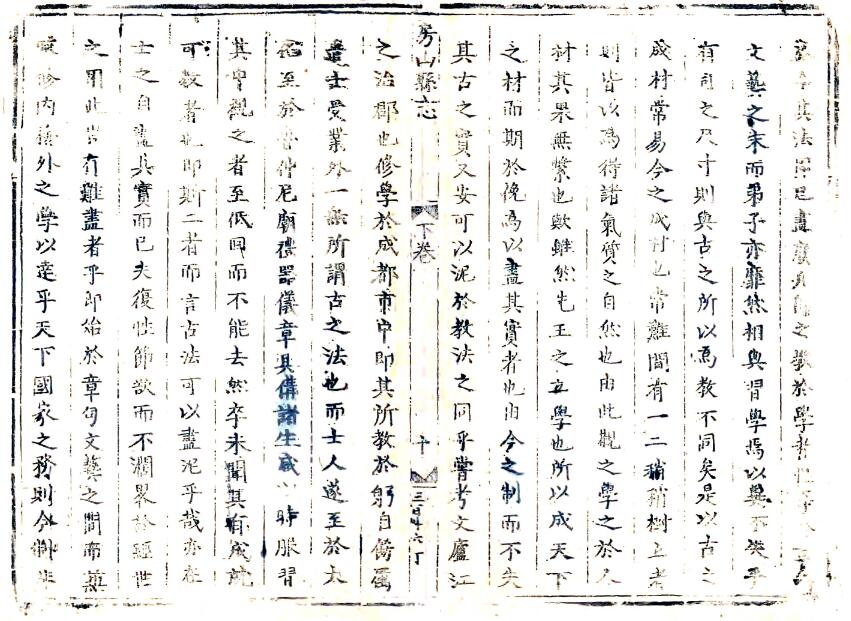 其法而已盡廢其師之教於學者
文藝之末而弟子亦靡然相與習學焉以異不失乎
有司之尺寸則與古之所以為教不同矣是以古之
成材常易今之成材也常難間有一二稍稍樹立者
則皆以為得諸氣質之自然也由此觀之學之於人
材其果無繫也歟雖然先王之立學也所以成天下
之材而期於俛焉以盡其實者也由今之制而不失
其古之實又安可以泥於教法之同乎嘗考文廬江
房山縣志
下卷
十
三百四六丁
之治郡也修學於成都市中即其所教於躬自飭厲
遣士受業外一無所謂古之法也而士人遂至於大
至於魯仲尼廟禮器儀章具備諸生咸以時服習
其中觀之者至低回而不能去然卒未聞其有成就
可數者也即斯二者而言古法可以盡泥乎哉亦在
士之自盡其實而已夫復性節欲而不濶畧於經世
之用此豈有難盡者乎即始於章句文藝之間而兼
內 外之學以達乎天下國家之務則今